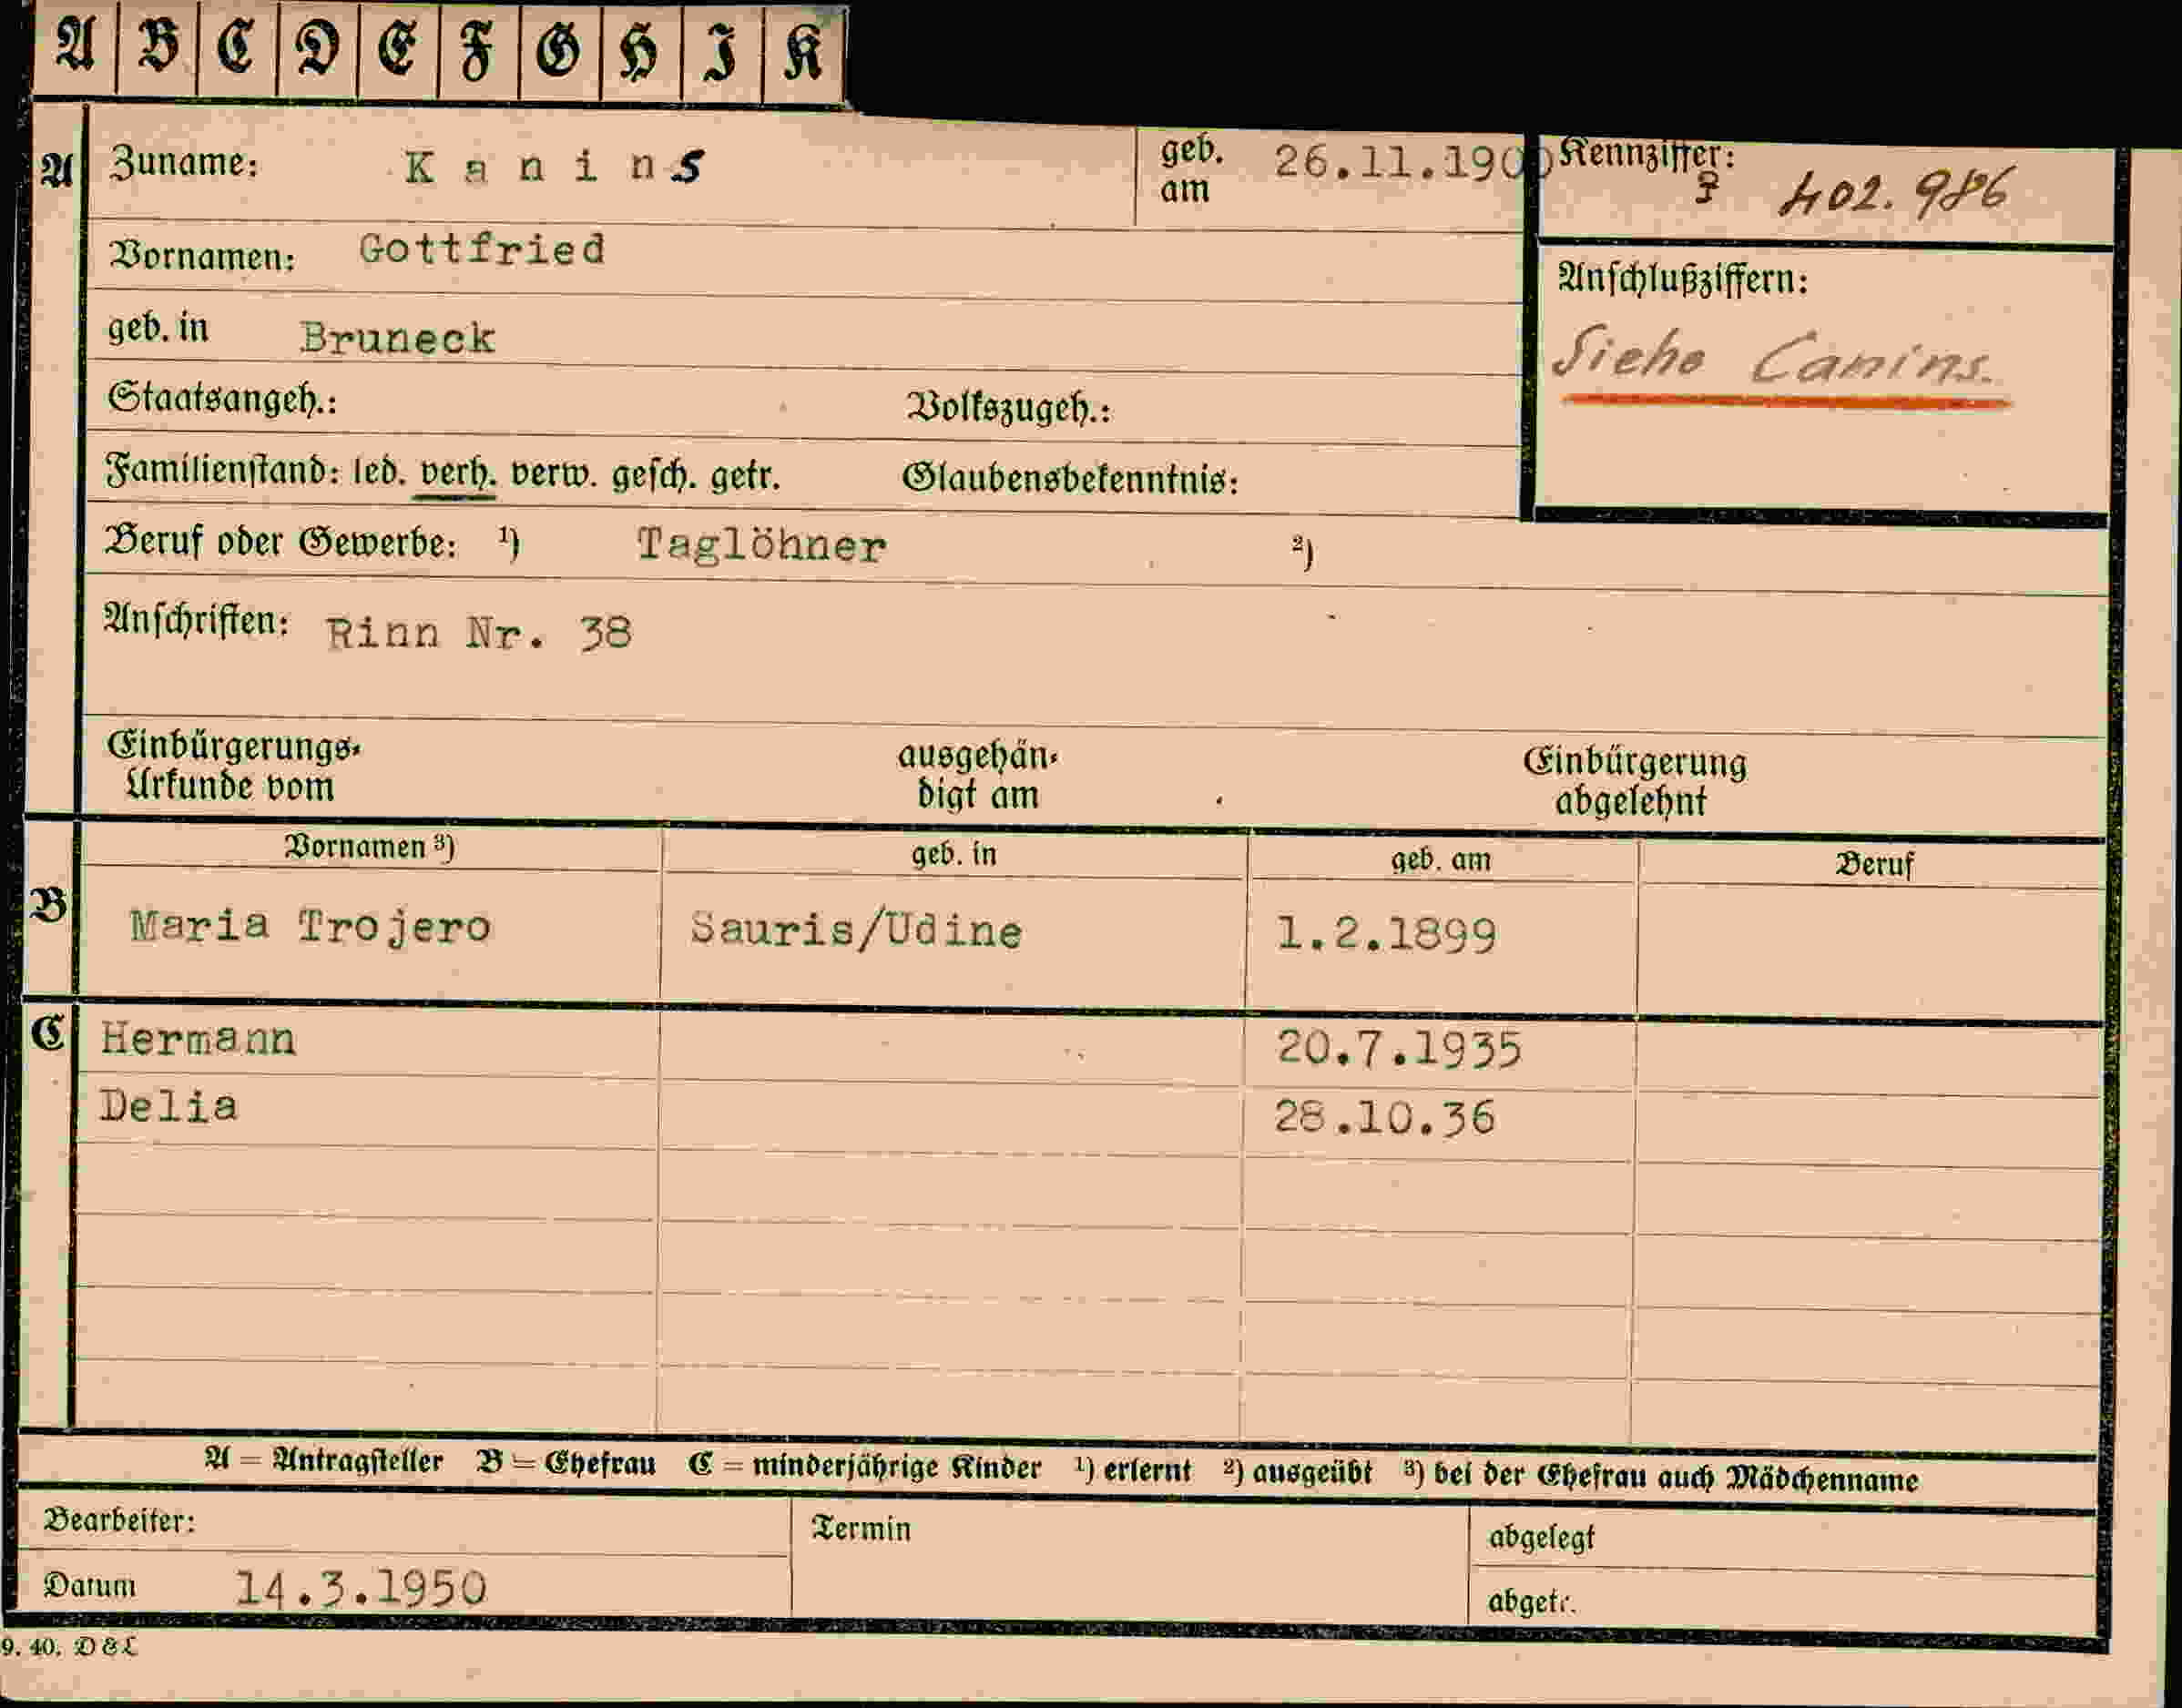 A B C D E F G H I K
A Zuname: K a n i n s geb. am 26.11.1900 Kennziffer: 402.986
Vornamen: Gottfried
Anschlußziffern:
geb. in Bruneck
Siehe Canins.
Staatsangeh.: Volkszugeh.:
Familienstand: led. verh. verw. gesch. getr. Glaubensbekenntnis:
Beruf oder Gewerbe: ¹) Taglöhner ²)
Anschriften: Rinn Nr. 38
Einbürgerungs- ausgehän- Einbürgerung
Urkunde vom digt am abgelehnt
Vornamen ³) geb. in geb. am Beruf
B Maria Trojero Sauris/Udine 1.2.1899
C Hermann 20.7.1935
Delia 28.10.36
A = Antragsteller B = Ehefrau C = minderjährige Kinder ¹) erlernt ²) ausgeübt ³) bei der Ehefrau auch Mädchenname
Bearbeiter: Termin abgelegt
Datum 14.3.1950 abgetr.
9. 40. D & L